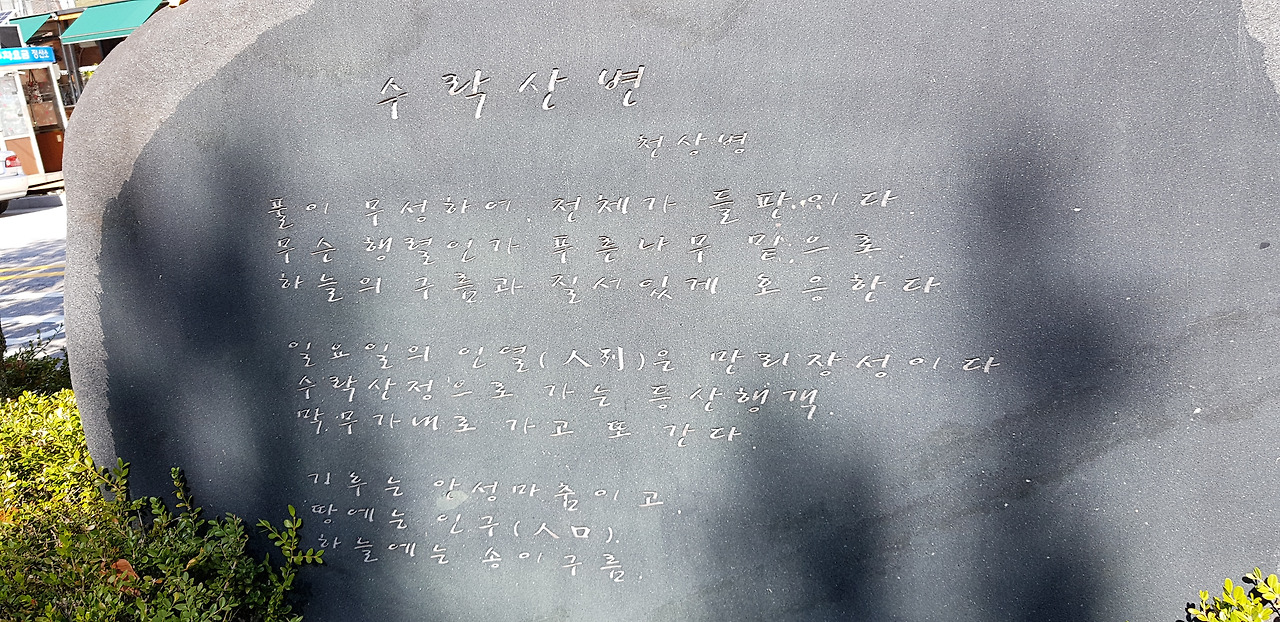 수락산변
천상병
풀이 무성하여, 전체가 들판이다.
무슨 행렬인가 푸른나무 밑으로.
하늘의 구름과 질서있게 호응한다
일요일의 인열(人列)은 만리장성이다
수락산정으로 가는 등산행객.
막무가내로 가고 또 간다.
기후는 안성마춤이고,
땅에는 인구(人口).
하늘에는 송이구름.
정산소